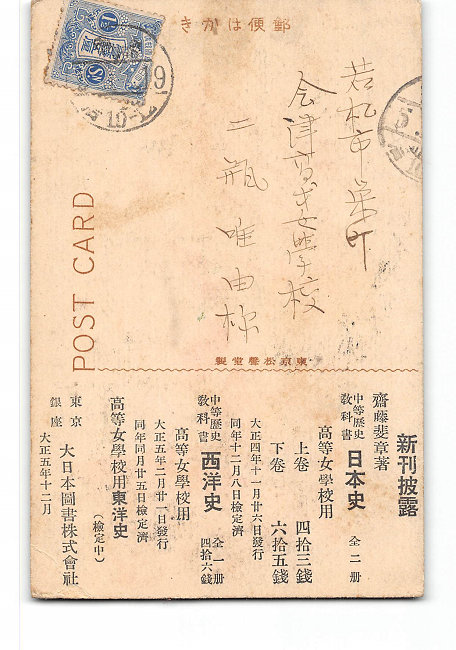 きかは便郵
若松市栄町
会津高等女學校
二瓶唯由様
POST CARD
東京松聲堂製
新刊披露
齋藤斐章著
中等歴史教科書 日本史 全二册
高等女學校用
上巻 四拾三錢
下巻 六拾五錢
大正四年十一月廿六日發行
同年十二月八日檢定濟
中等歴史教科書 西洋史 全一册 四拾六錢
高等女學校用
大正五年二月廿一日發行
同年同月廿五日檢定濟
高等女學校用東洋史
（檢定中）
東京銀座 大日本圖書株式會社
大正五年十二月